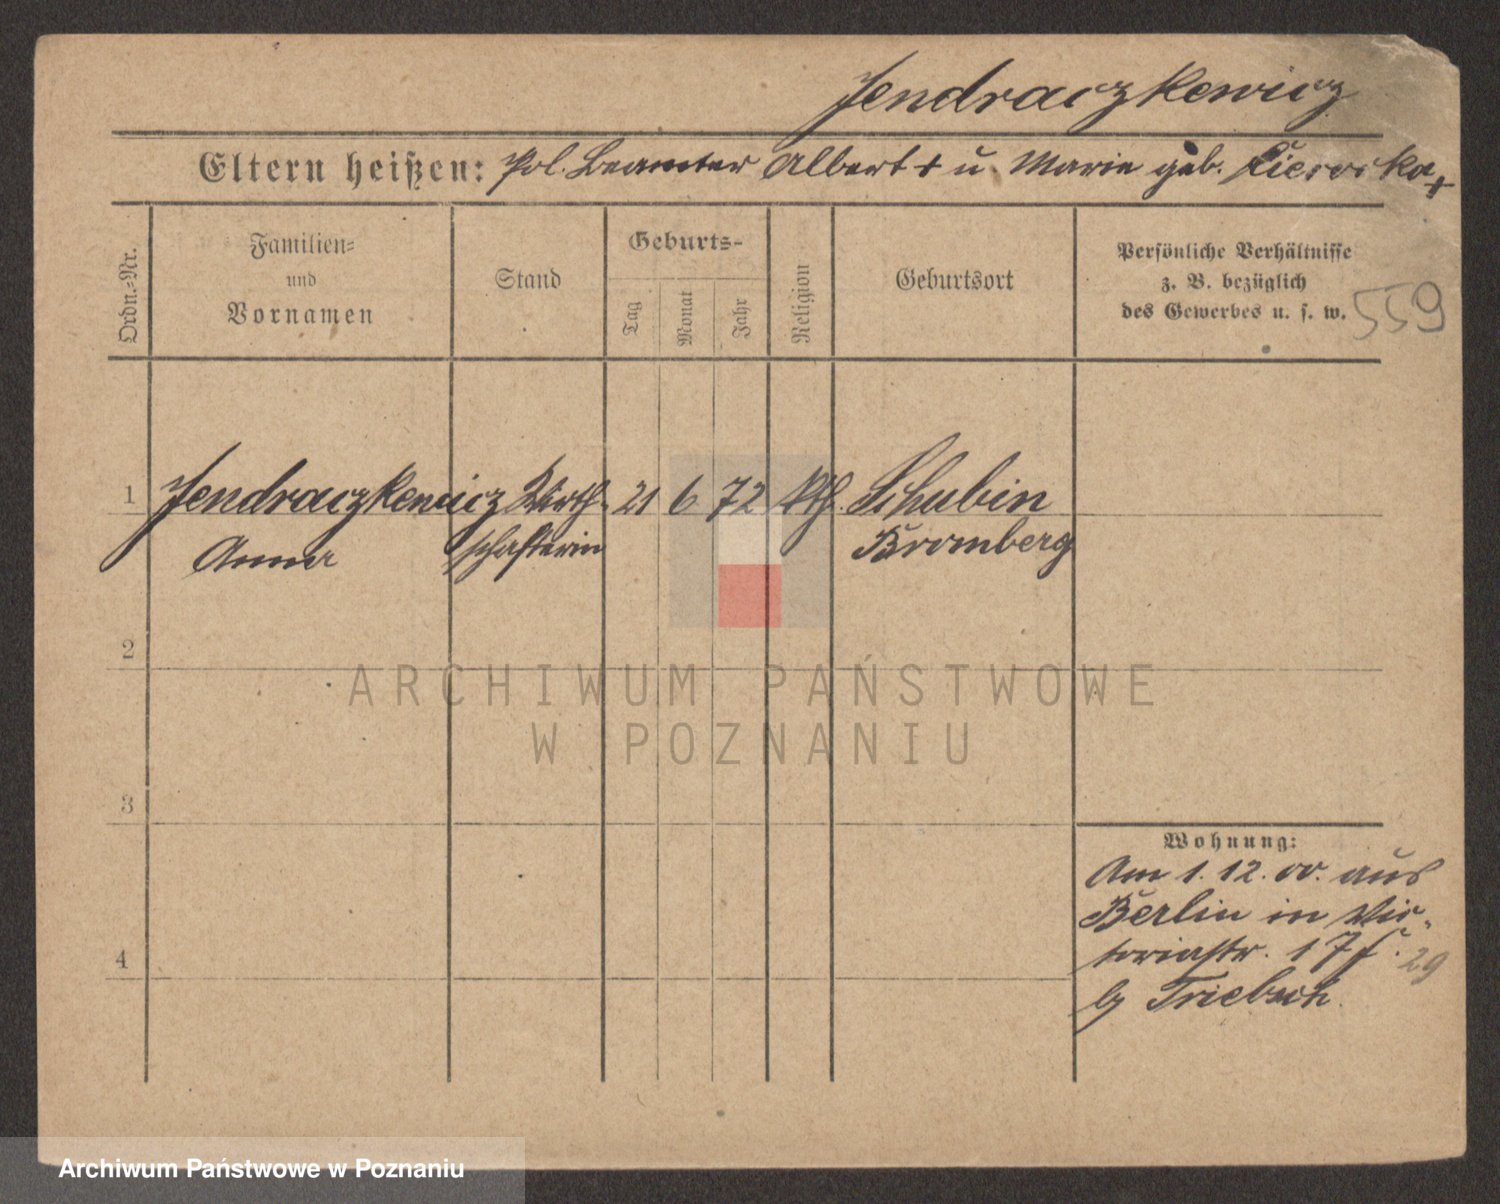 Jendraczkewicz
Eltern heißen: Pol. Beamter Albert + u Marie geb. +
Ordn.-Nr.
Familien-
und
Vornamen
Stand
Geburts-
Tag
Monat
Jahr
Religion
Geburtsort
Persönliche Verhältnisse
z. B. bezüglich
des Gewerbes u. s. w.
559
1 Jendraczkewicz Wirth- 21 6 72 kth. Schubin
Anna schafterin Bromberg
2
3
4
Wohnung:
Am 1. 12. 00. aus
Berlin in Vic-
toriastr. 17 f. 29
by Triebsch.
ARCHIWUM PAŃSTWOWE
W POZNANIU
Archiwum Państwowe w Poznaniu